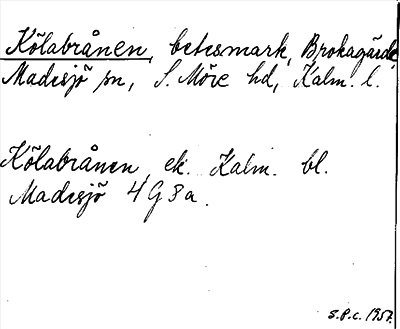 Kölabrånen, betesmark, Brokagärde,
Madesjö sn, S. Möre hd, Kalm. l.
Kölabrånen, ek. Kalm. bl.
Madesjö 4 G 8 a.
S.P.C. 1957.